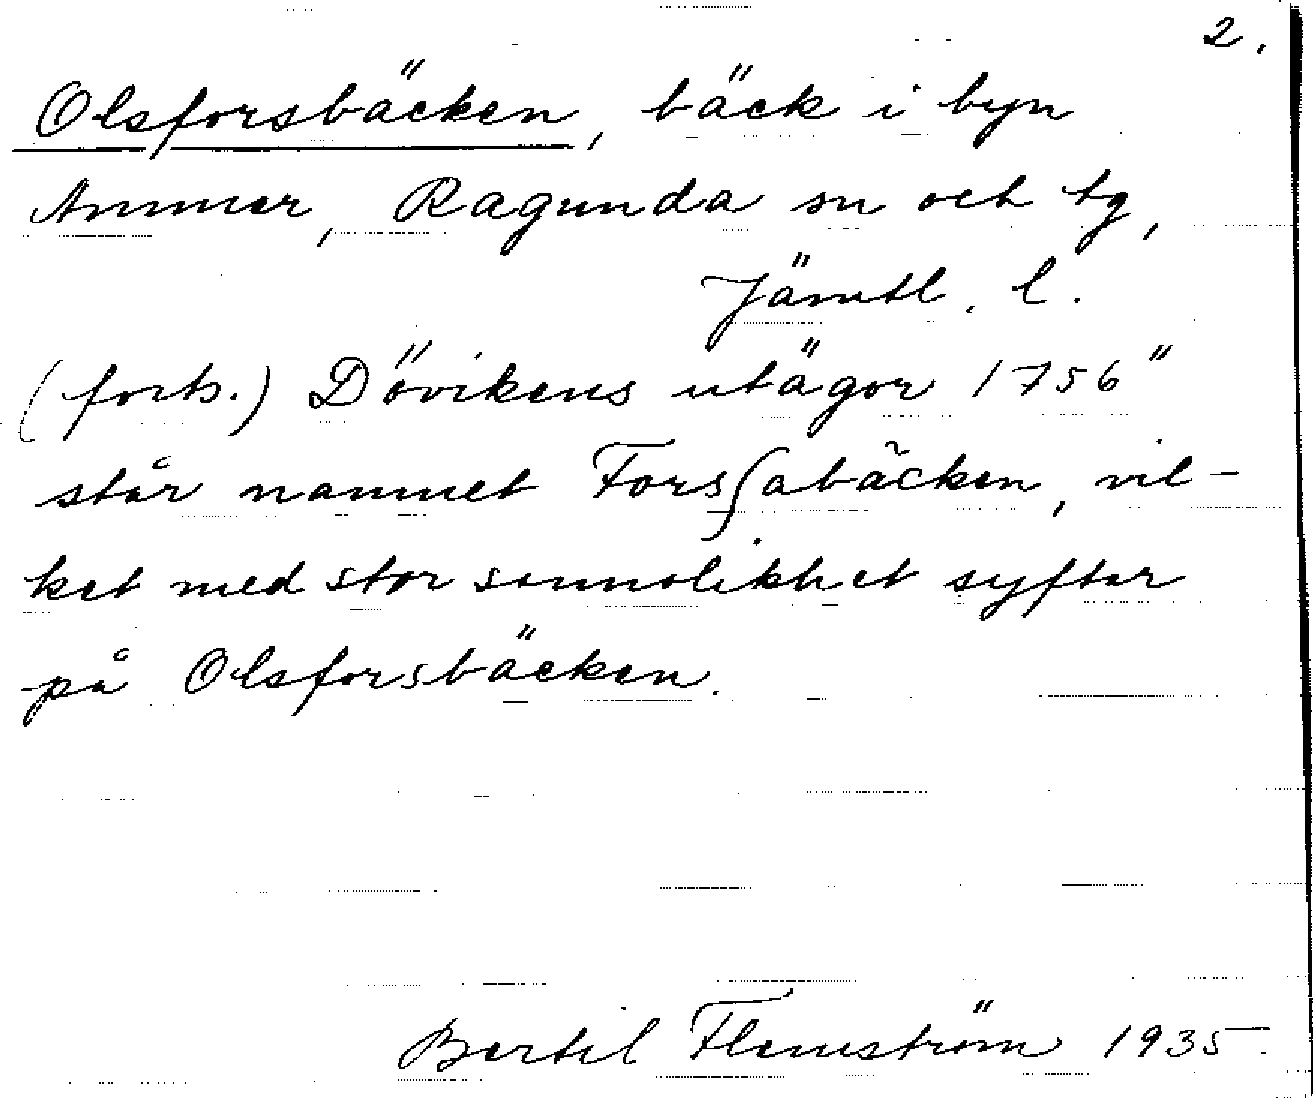 2.
Olsforsbäcken, bäck i byn
Ammer, Ragunda sn och tg,
Jämtl. l.
(forts.) Dövikens utägor 1756"
står namnet Forsſabäcken, vil-
ket med stor sannolikhet syftar
på Olsforsbäcken.
Bertil Flemström 1935.